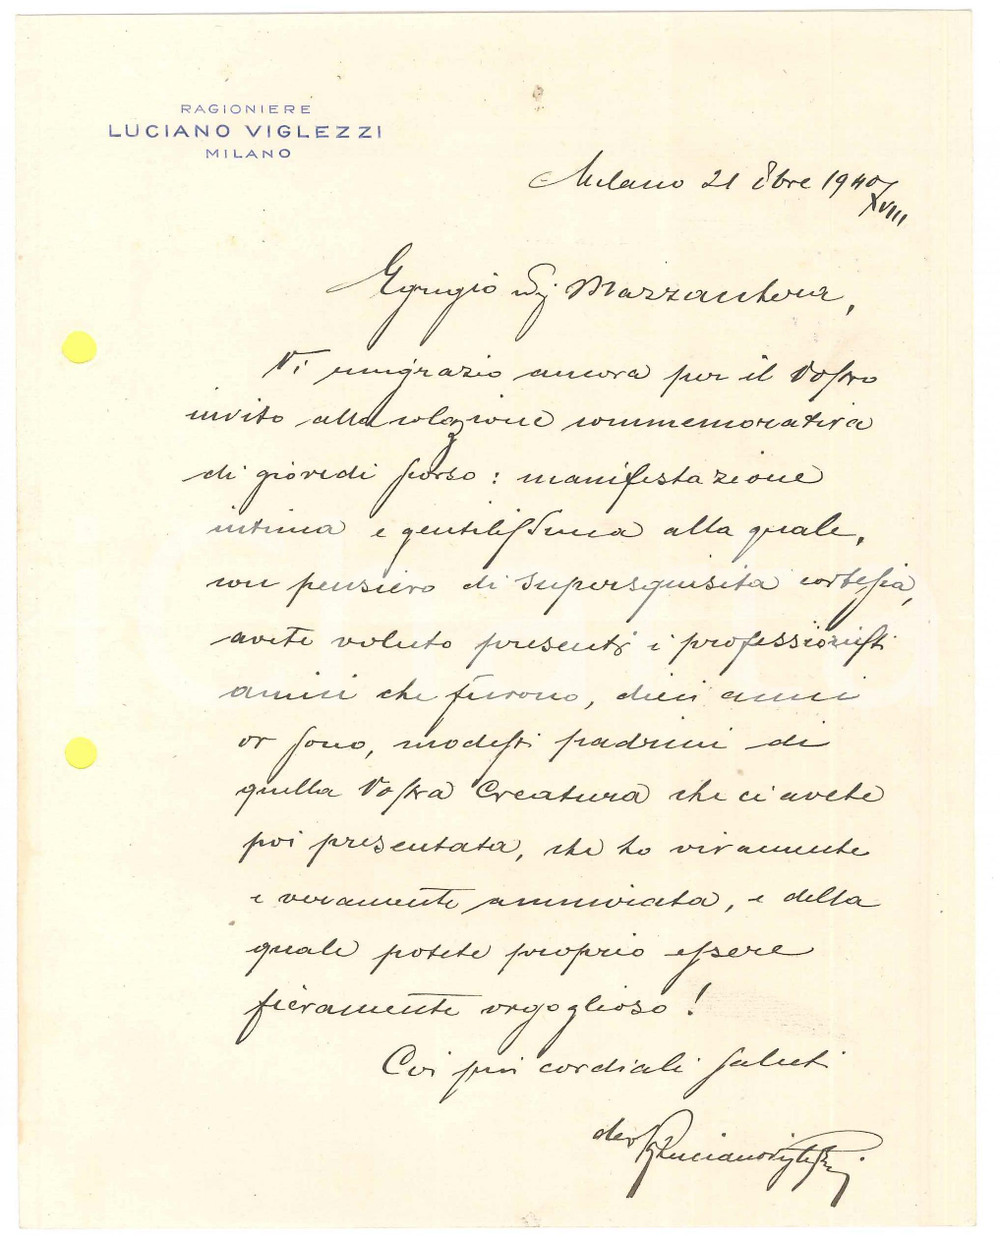 RAGIONIERE
LUCIANO VIGLEZZI
MILANO
Milano 21 8bre 1940
XVIII
Egregio Sig Mazzantora,
Vi ringrazio ancora per il Vostro
invito alla colazione commemorativa
di giovedì scorso: manifestazione
intima e gentilissima alla quale,
con pensiero di supersquisita cortesia,
avete voluto presenti i professionisti
amici che furono, dieci anni
or sono, modesti padrini di
quella Vostra Creatura che ci avete
poi presentata, che ho vivamente
e veramente ammirata, e della
quale potete proprio essere
fieramente orgoglioso!
Coi più cordiali saluti
dev Luciano Viglezzi